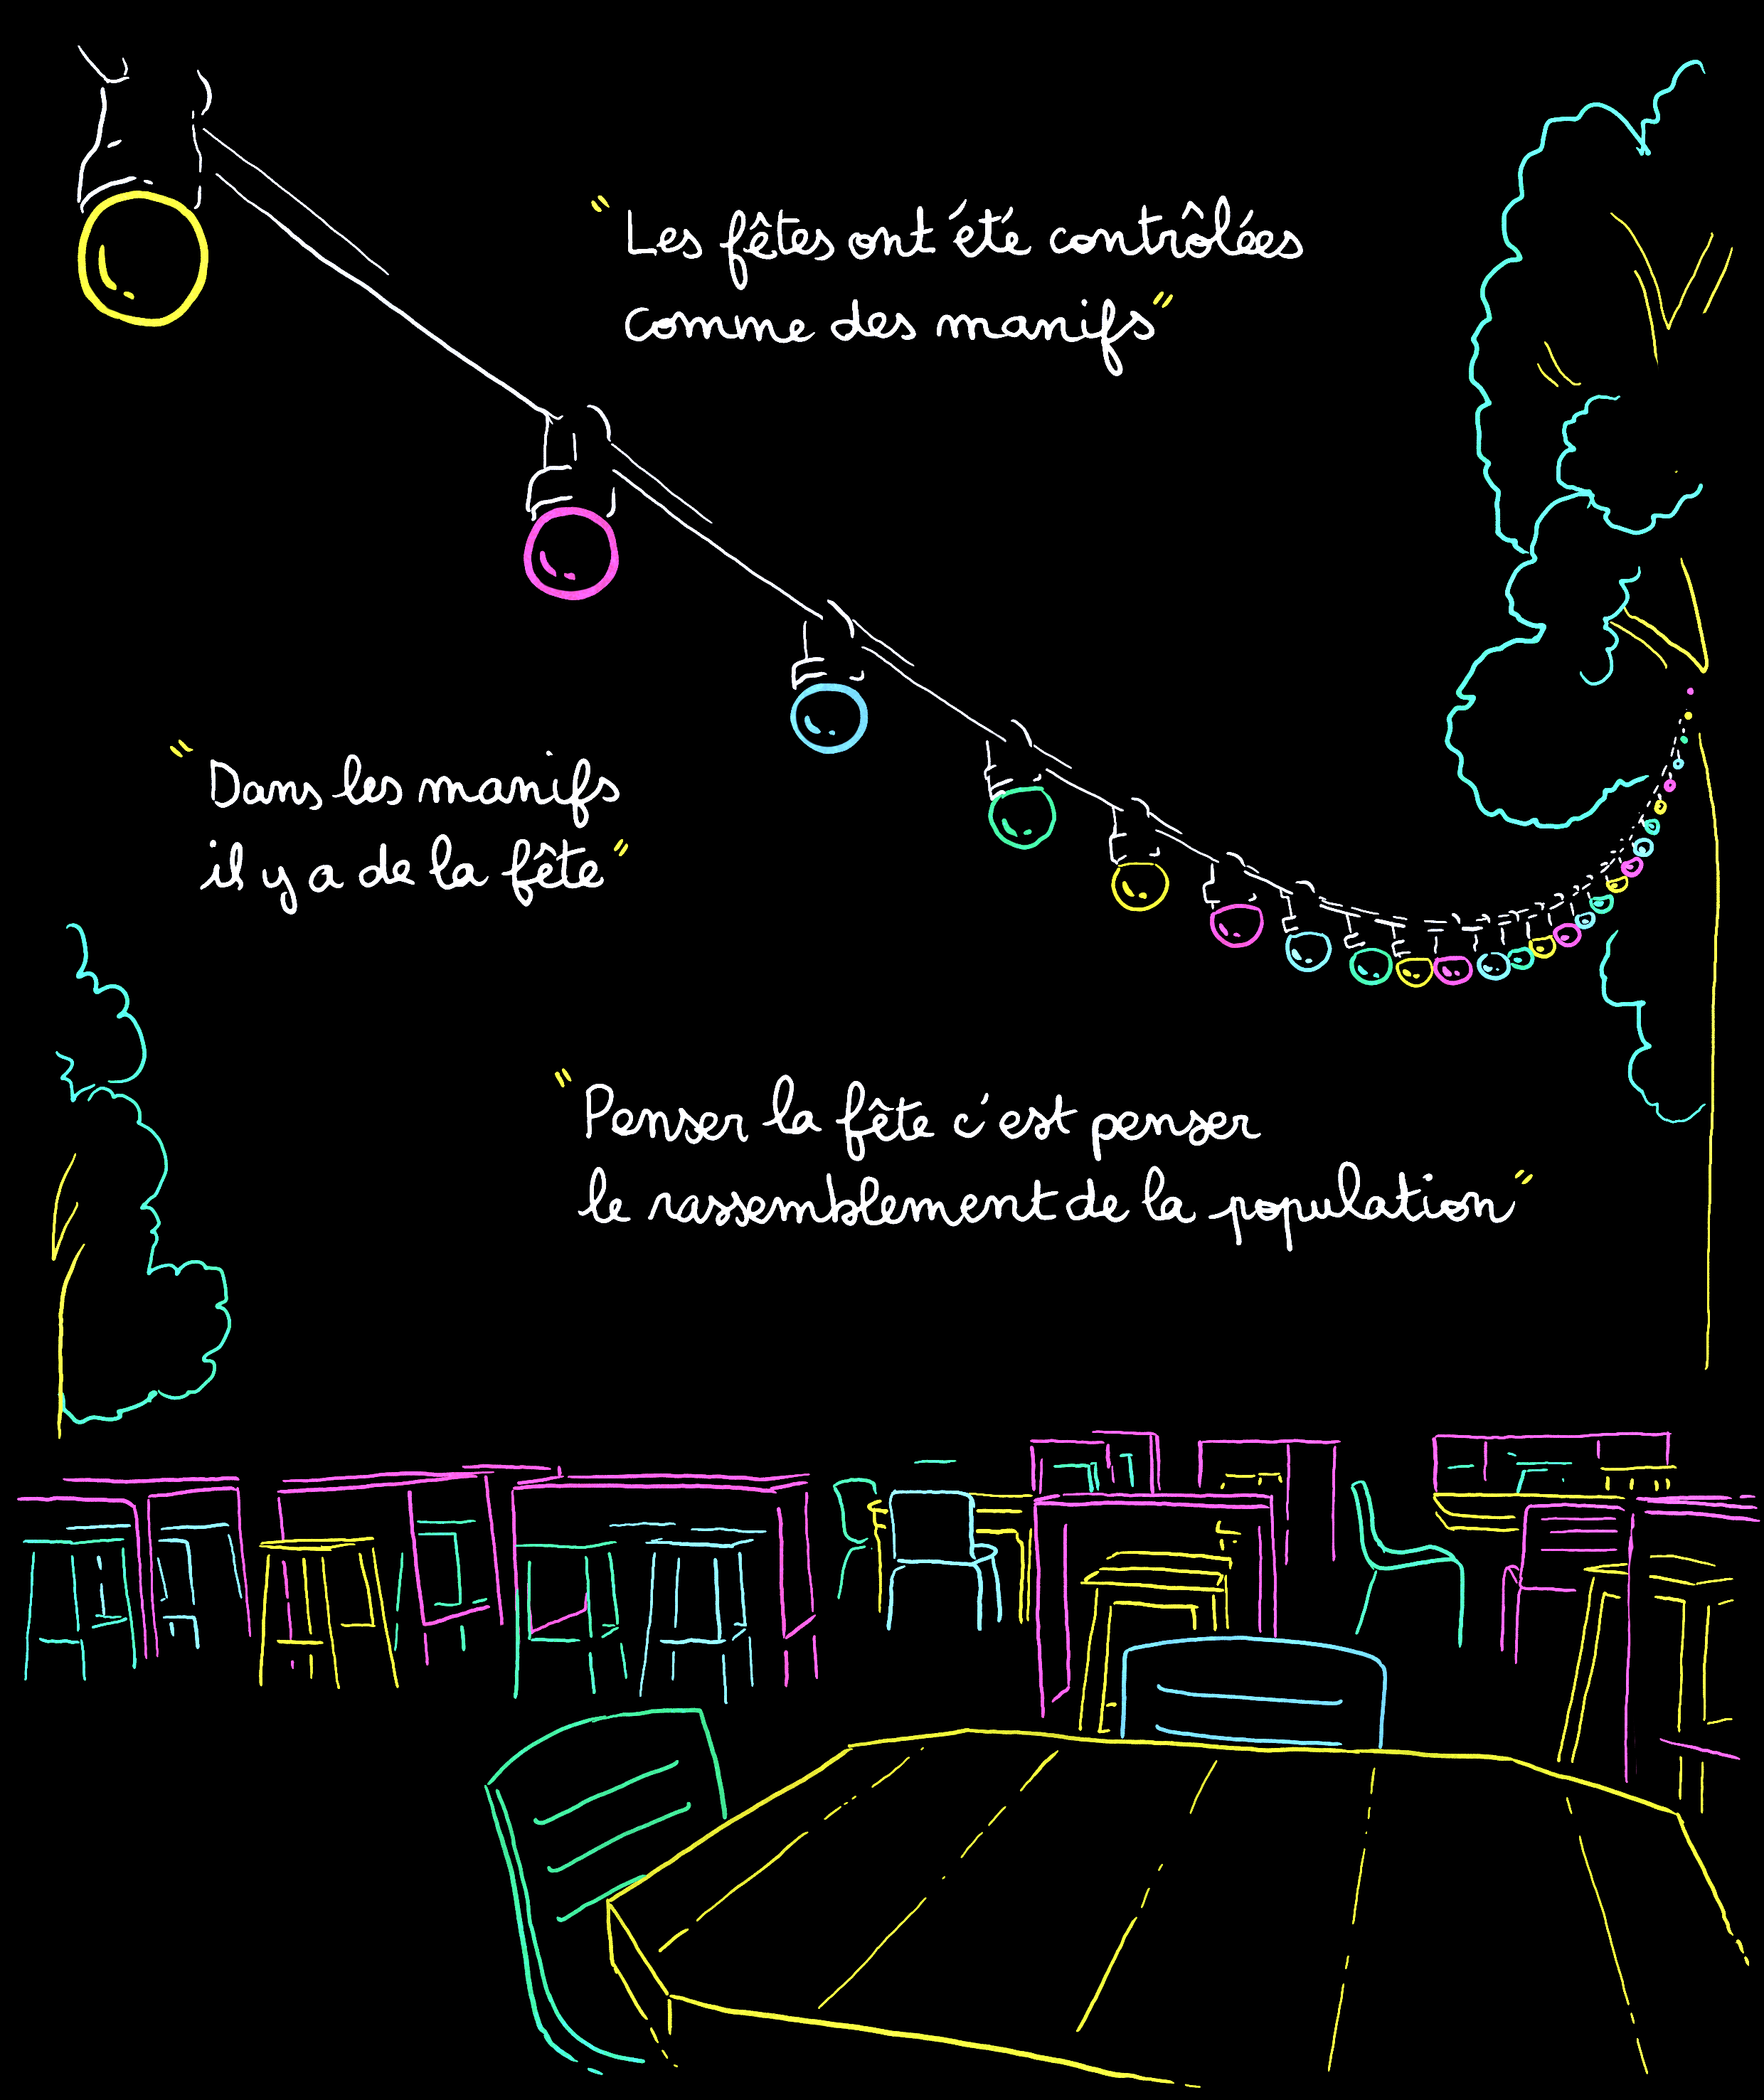 "Les fêtes ont été contrôlées
comme des manifs"
"Dans les manifs
il y a de la fête"
"Penser la fête c'est penser
le rassemblement de la population"